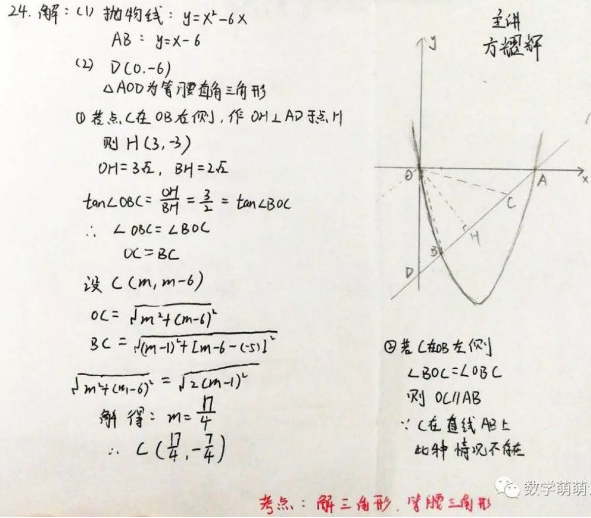 24. 解: (1) 抛物线: y=x²-6x
AB: y=x-6
(2) D(0.-6)
△AOD为等腰直角三角形
① 若点C在OB右侧, 作OH⊥AD于点H
则 H(3,-3)
OH=3√2, BH=2√2
tan∠OBC=OH/BH=3/2=tan∠BOC
∴ ∠OBC=∠BOC
OC=BC
设 C(m,m-6)
OC=√(m²+(m-6)²)
BC=√((m-1)²+[m-6-(-5)]²)
√(m²+(m-6)²)=√(2(m-1)²)
解得: m=17/4
∴ C(17/4,-7/4)
主讲
方耀辉
y
O
A
x
C
H
B
D
②若C在OB左侧
∠BOC=∠OBC
则 OC∥AB
∵ C在直线AB上
此种情况不存在
数学萌萌
考点: 解三角形. 等腰三角形